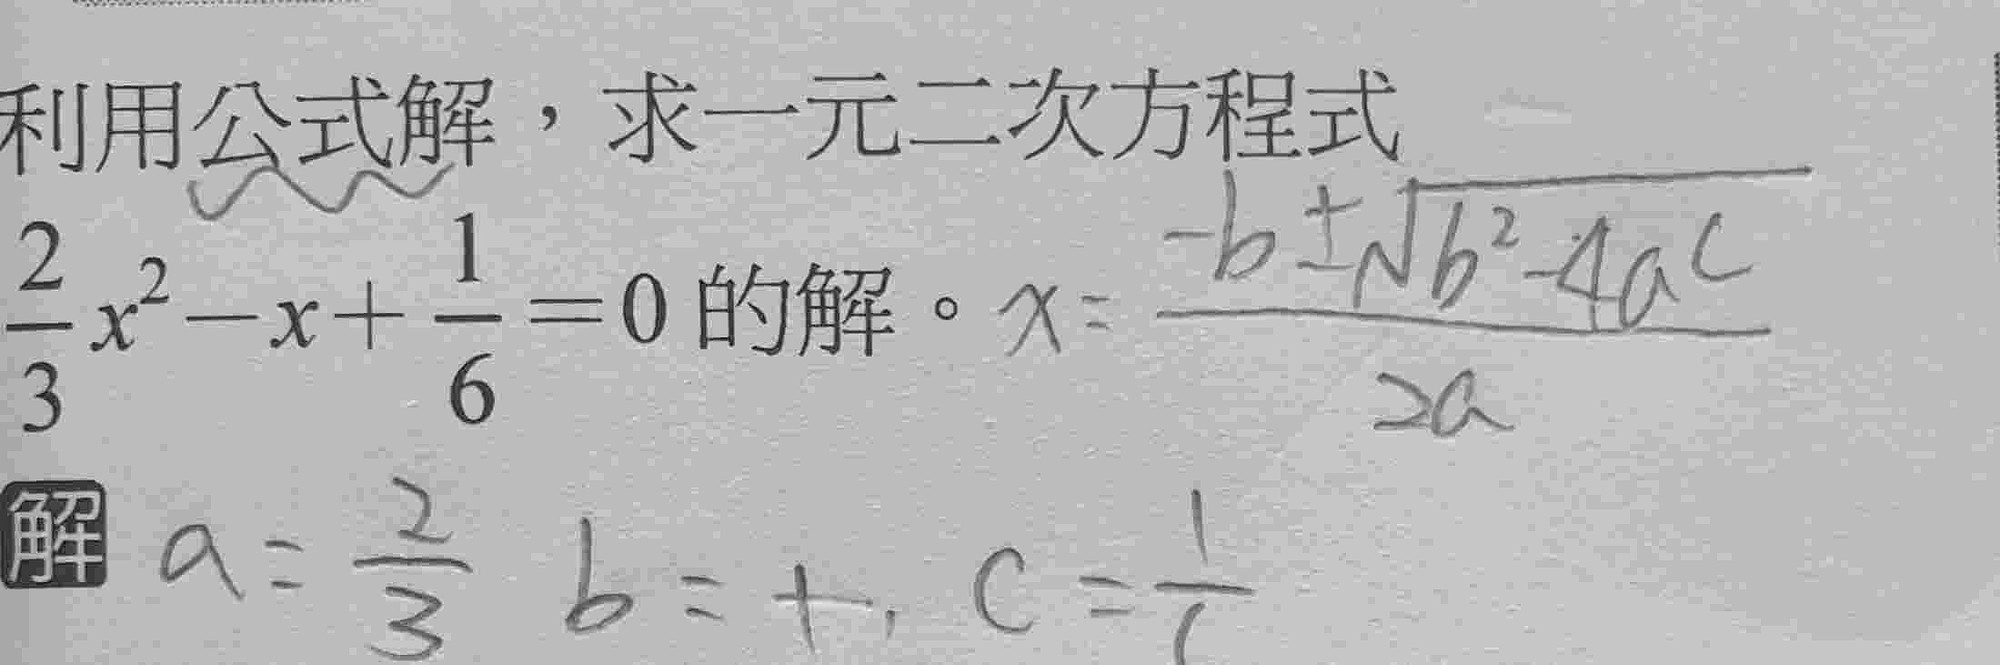 利用公式解，求一元二次方程式
2/3 x² − x + 1/6 = 0 的解。 x = (-b ± √(b² - 4ac)) / 2a
解 a = 2/3 b = c = 1/